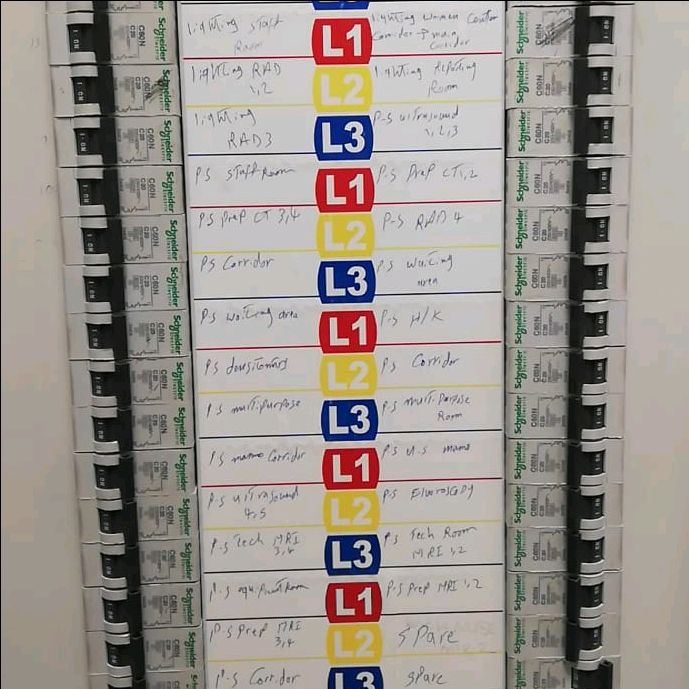 lighting staff Room L1 lighting women Center
Corridor + main Corridor
lighting RAD 1,2 L2 lighting Reporting Room
lighting RAD3 L3 P-S ultrasound 1,2,3
P.S staff Room L1 P.S Prep CT 1,2
P.S Prep CT 3,4 L2 P-S RAD 4
P.S Corridor L3 P.S waiting area
P.S waiting area L1 P.S H/K
P.S L2 P.S Corridor
P.S multipurpose L3 P.S multi Porpose Room
P.S mamo Corridor L1 P.S U.S mamo
P.S ultrasound 4,5 L2 P.S
P-S Tech MRI 3,4 L3 P-S Tech Room MRI 1,2
P.S Room L1 P-S Prep MRI 1,2
P-S Prep MRI 3,4 L2 SPare
P-S Corridor L3 SPare
Schneider Electric
C60N
C20
I-ON